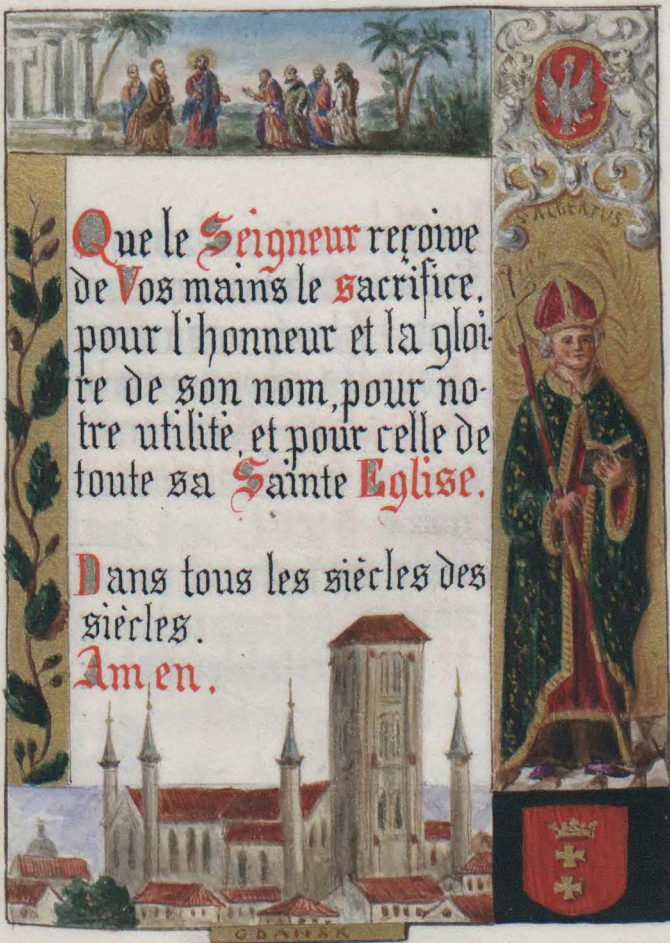 S ALBERTUS
Que le Seigneur reçoive
de Vos mains le sacrifice,
pour l'honneur et la gloi-
re de son nom, pour no-
tre utilité, et pour celle de
toute sa Sainte Eglise.
Dans tous les siècles des
siècles.
Amen.
GDANSK